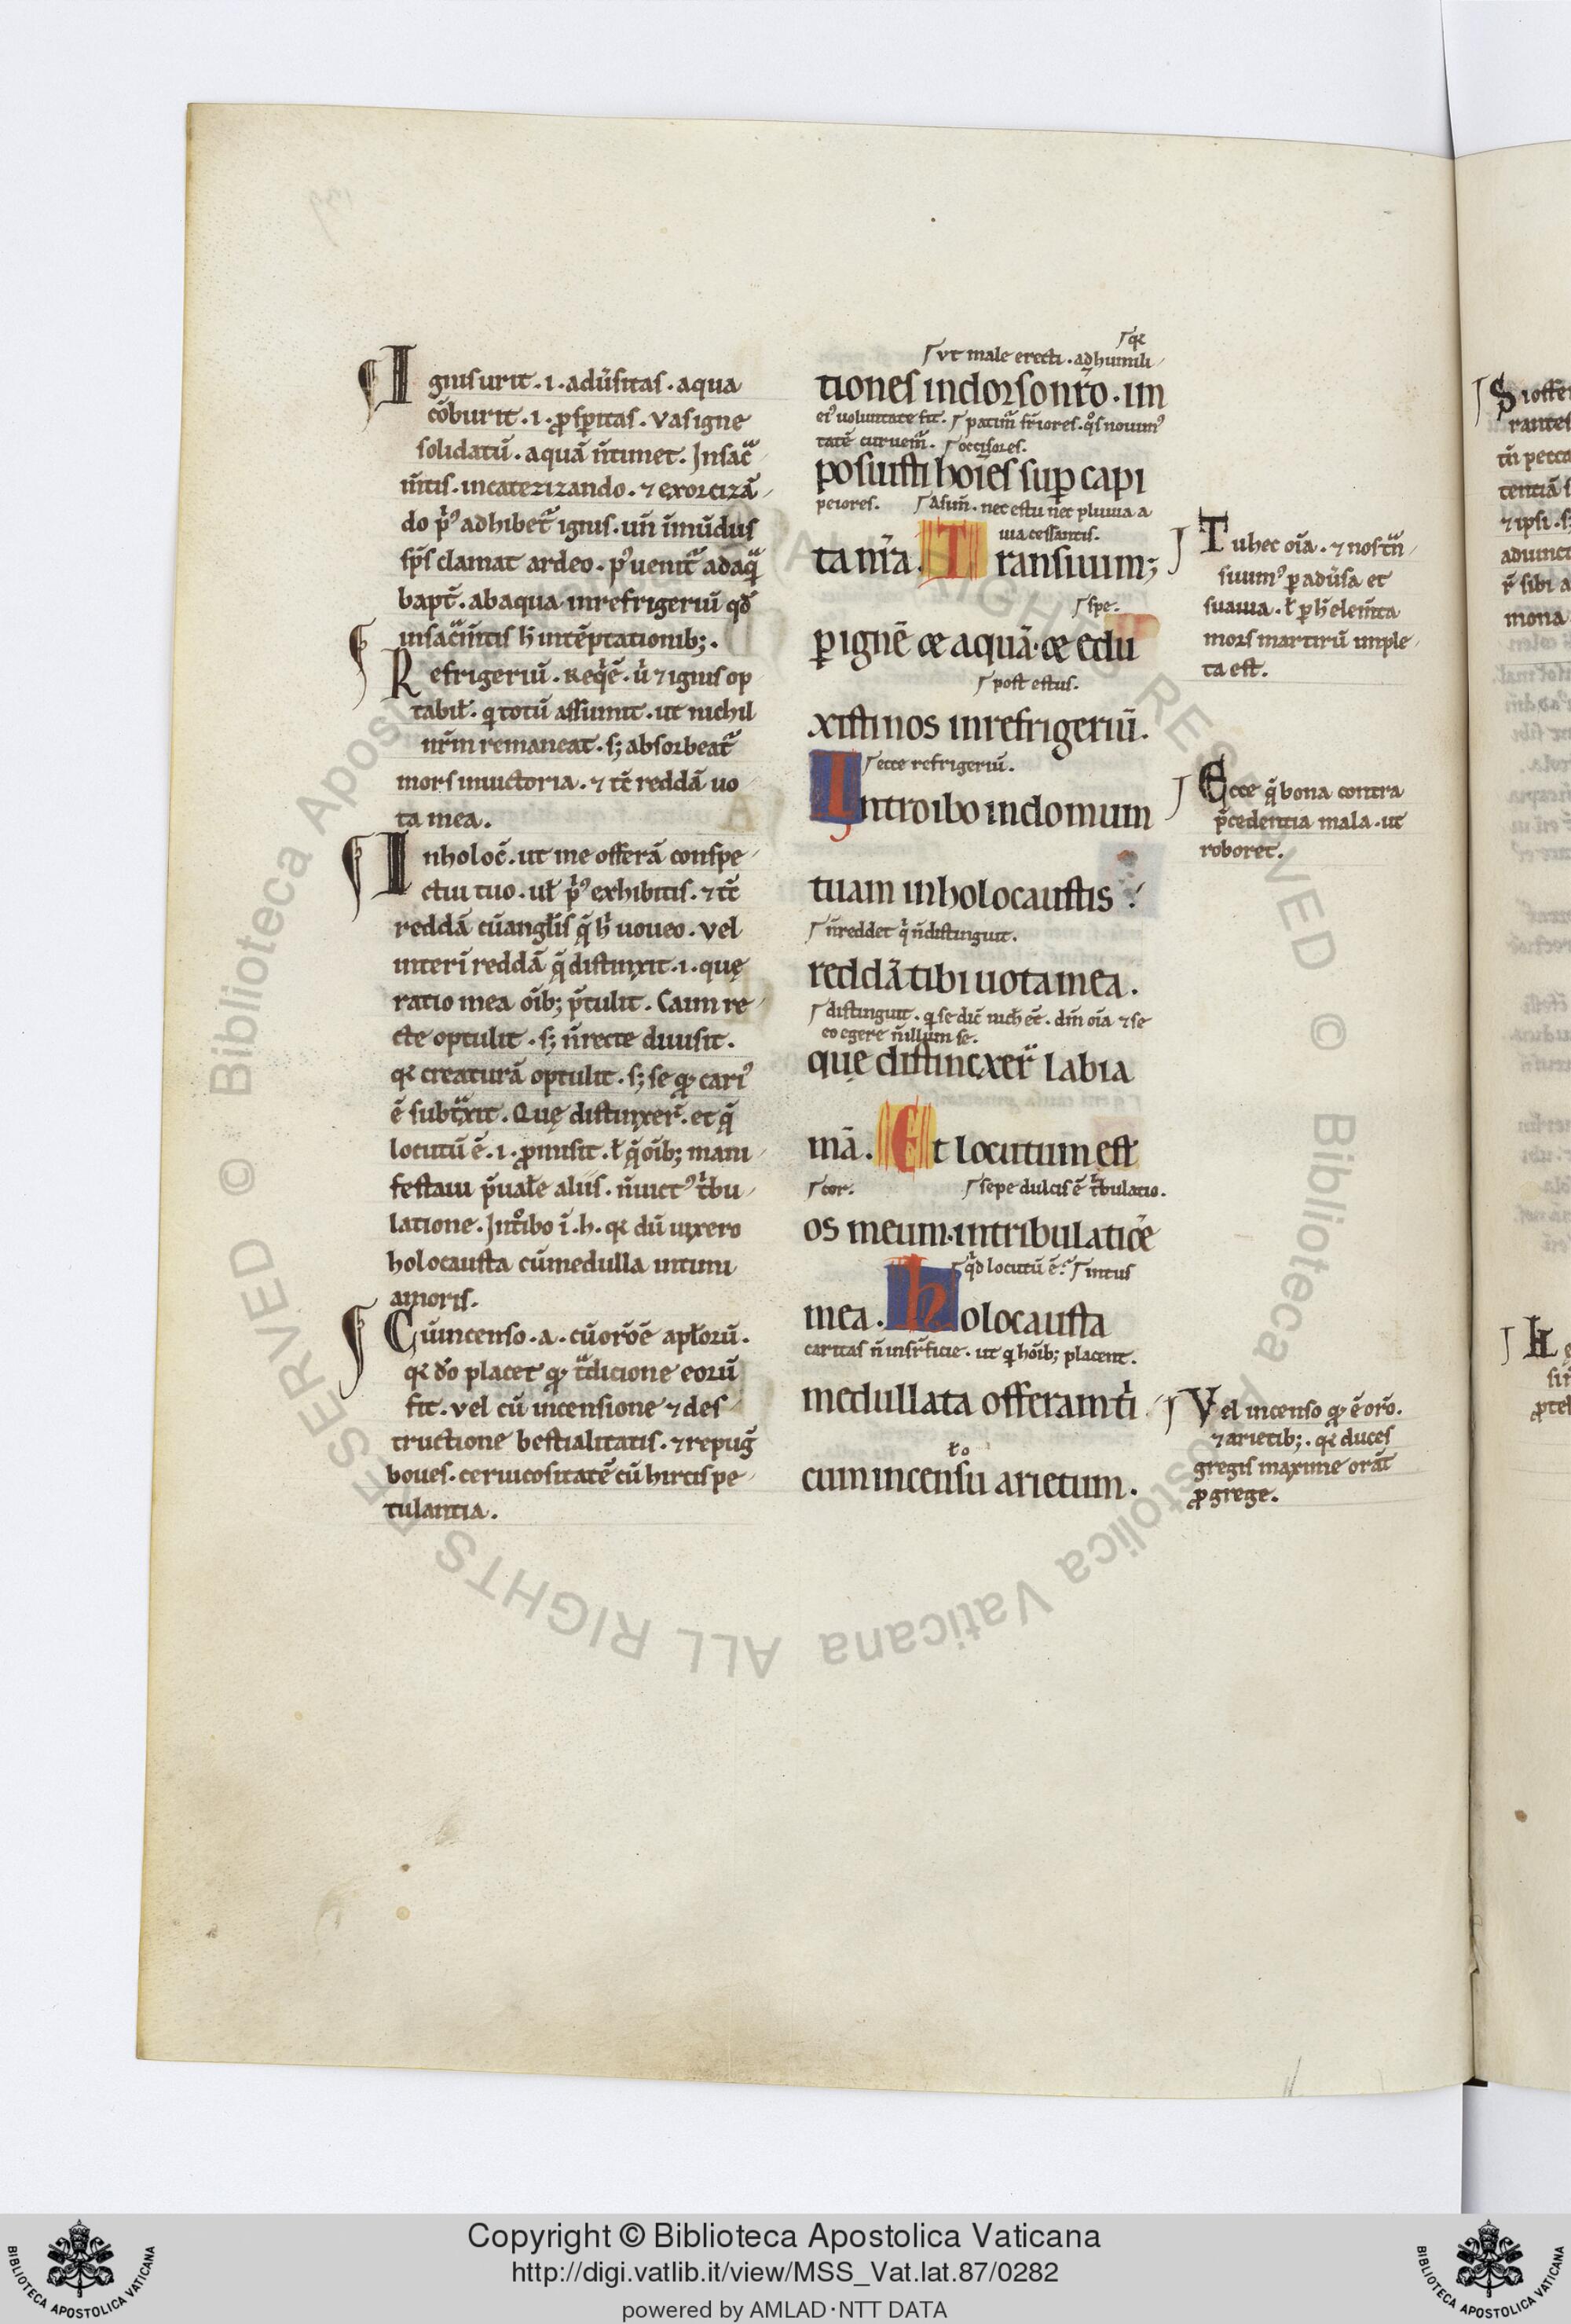 Ignis urit . i . adũsitas . aqua
cõburit . i . ꝓsperitas . vas igne
solidatũ . aquã ñ timet . In sac̃
m̃tis . in catezizando . ⁊ exorcizã
do p̃ꝰ adhibet̃ ignis . uñ ĩmũdus
sp̃s clamat ardeo . pꝰ uenit̃ ad aquã
bapt̃ . ab aqua in refrigeriũ qđ
in sac̃m̃tis h̃ in tẽptationib; .
Refrigeriũ . Requiẽ . ů ⁊ ignis op
tabił . qͥ totũ assumit . ut nichil
nr̃m remaneat . s; absorbeat̃
mors in uictoria . ⁊ tc̃ reddã uo
ta mea .
In holoc̃ . ut me offerã conspe
ctui tuo . uł pͥꝰ exhibitis . ⁊ tc̃
reddã cũ angłis q̃ h̃ uoueo . vel
interĩ reddã q̃ distinxit . i . quę
ratio mea oĩb; p̃tulit . Caim re
cte optulit . s; ñ recte diuisit .
qꝛ creaturã optulit . s; se qđ cariꝰ
ẽ subtᵃxit . Quę distinxer̃ . et q̃
locutũ ẽ . i . ꝓmisit . ł q̃ oĩb; mani
festaui p̃ualẽ aliis . ñ uictꝰ tͥbu
latione . Introibo ĩ . h . qꝛ dũ uixero
holocausta cũ medulla intimi
amoris .
Cũ incenso . a . cũ orõẽ apłorũ .
qꝛ đo placet qđ tᵃdicione eorũ
fit . vel cũ incensione ⁊ des
tructione bestialitatis . ⁊ repug̃
boues . ceruicositatẽ cũ hircis pe
tulantia .
qꝛ
ut male erecti . ad humili
tiones in dorso nr̃o . im
eiꝰ uoluntate fit . patim̃ fr̃iores . qͦs nouimꝰ
tatẽ curuem̃ . occisores .
posuisti hoĩes sup capi
peiores . Asum̃ . nec estu nec pluuia a
uia cessantis .
ta nr̃a . Transiuim;
spe .
p ignẽ ⁊ aquã . ⁊ edu
post estus .
xisti nos in refrigeriũ .
ecce refrigeriũ .
Introibo in domum
tuam in holocaustis :
ñ reddet qͥ ñ distinguit .
reddã tibi uota mea .
distinguit . qͥ se dic̃ nich̃ eẽ . dm̃ oĩa ⁊ se
eo egere ñ illum se .
quę distinxer̃ labia
mã . Et locutum est
cor . sepe dulcis ẽ tͥbulatio .
os meum . in tribulatiõe
qđ locutũ ẽ . intus
mea . holocausta
caritas ñ in sr̃ficie . ut qͥ hõib; placent .
medullata offeram tͥ
ł o
cum incensu arietum .
Tu hec oĩa . ⁊ nos tñ
suumꝰ p adũsa et
suauia . ł p h̃ elem̃ta
mors martirũ imple
ta est .
Ecce q̃ bona contra
p̃cedentia mala . ut
roboret .
Vel incenso qđ ẽ orõ .
⁊ arietib; . qꝛ duces
gregis maxime orãt
ꝓ grege .
Copyright © Biblioteca Apostolica Vaticana
http://digi.vatlib.it/view/MSS_Vat.lat.87/0282
powered by AMLAD·NTT DATA